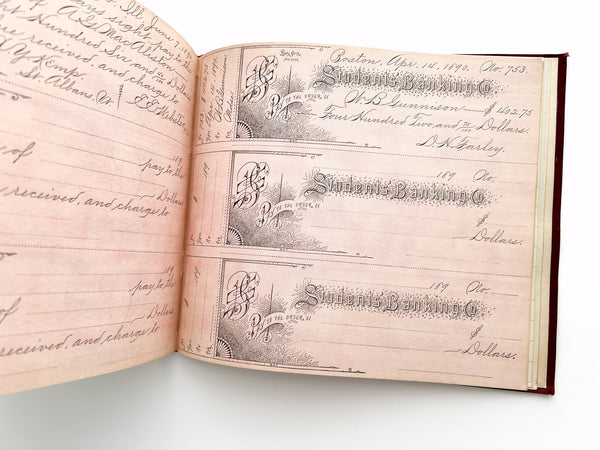 Ill, June 7, 18
days sight pay to the
of A. G. MacAlister
Hundred Six and Dollars
ue received, and charge to
Kemp.
St. Albans, Vt.
of
189
pay to the
Dollars
received, and charge to
of
189
pay to the
Dollars
received, and charge to
Boston, Apr. 14, 1890. No. 753.
Students Banking Co.
Pay TO THE ORDER OF
W. B. Gunnison $402.75
Four Hundred Two and 75/100 Dollars.
D. H. Farley
189 No.
Students Banking Co.
Pay TO THE ORDER OF
$
Dollars.
189 No.
Students Banking Co.
Pay TO THE ORDER OF
$
Dollars.